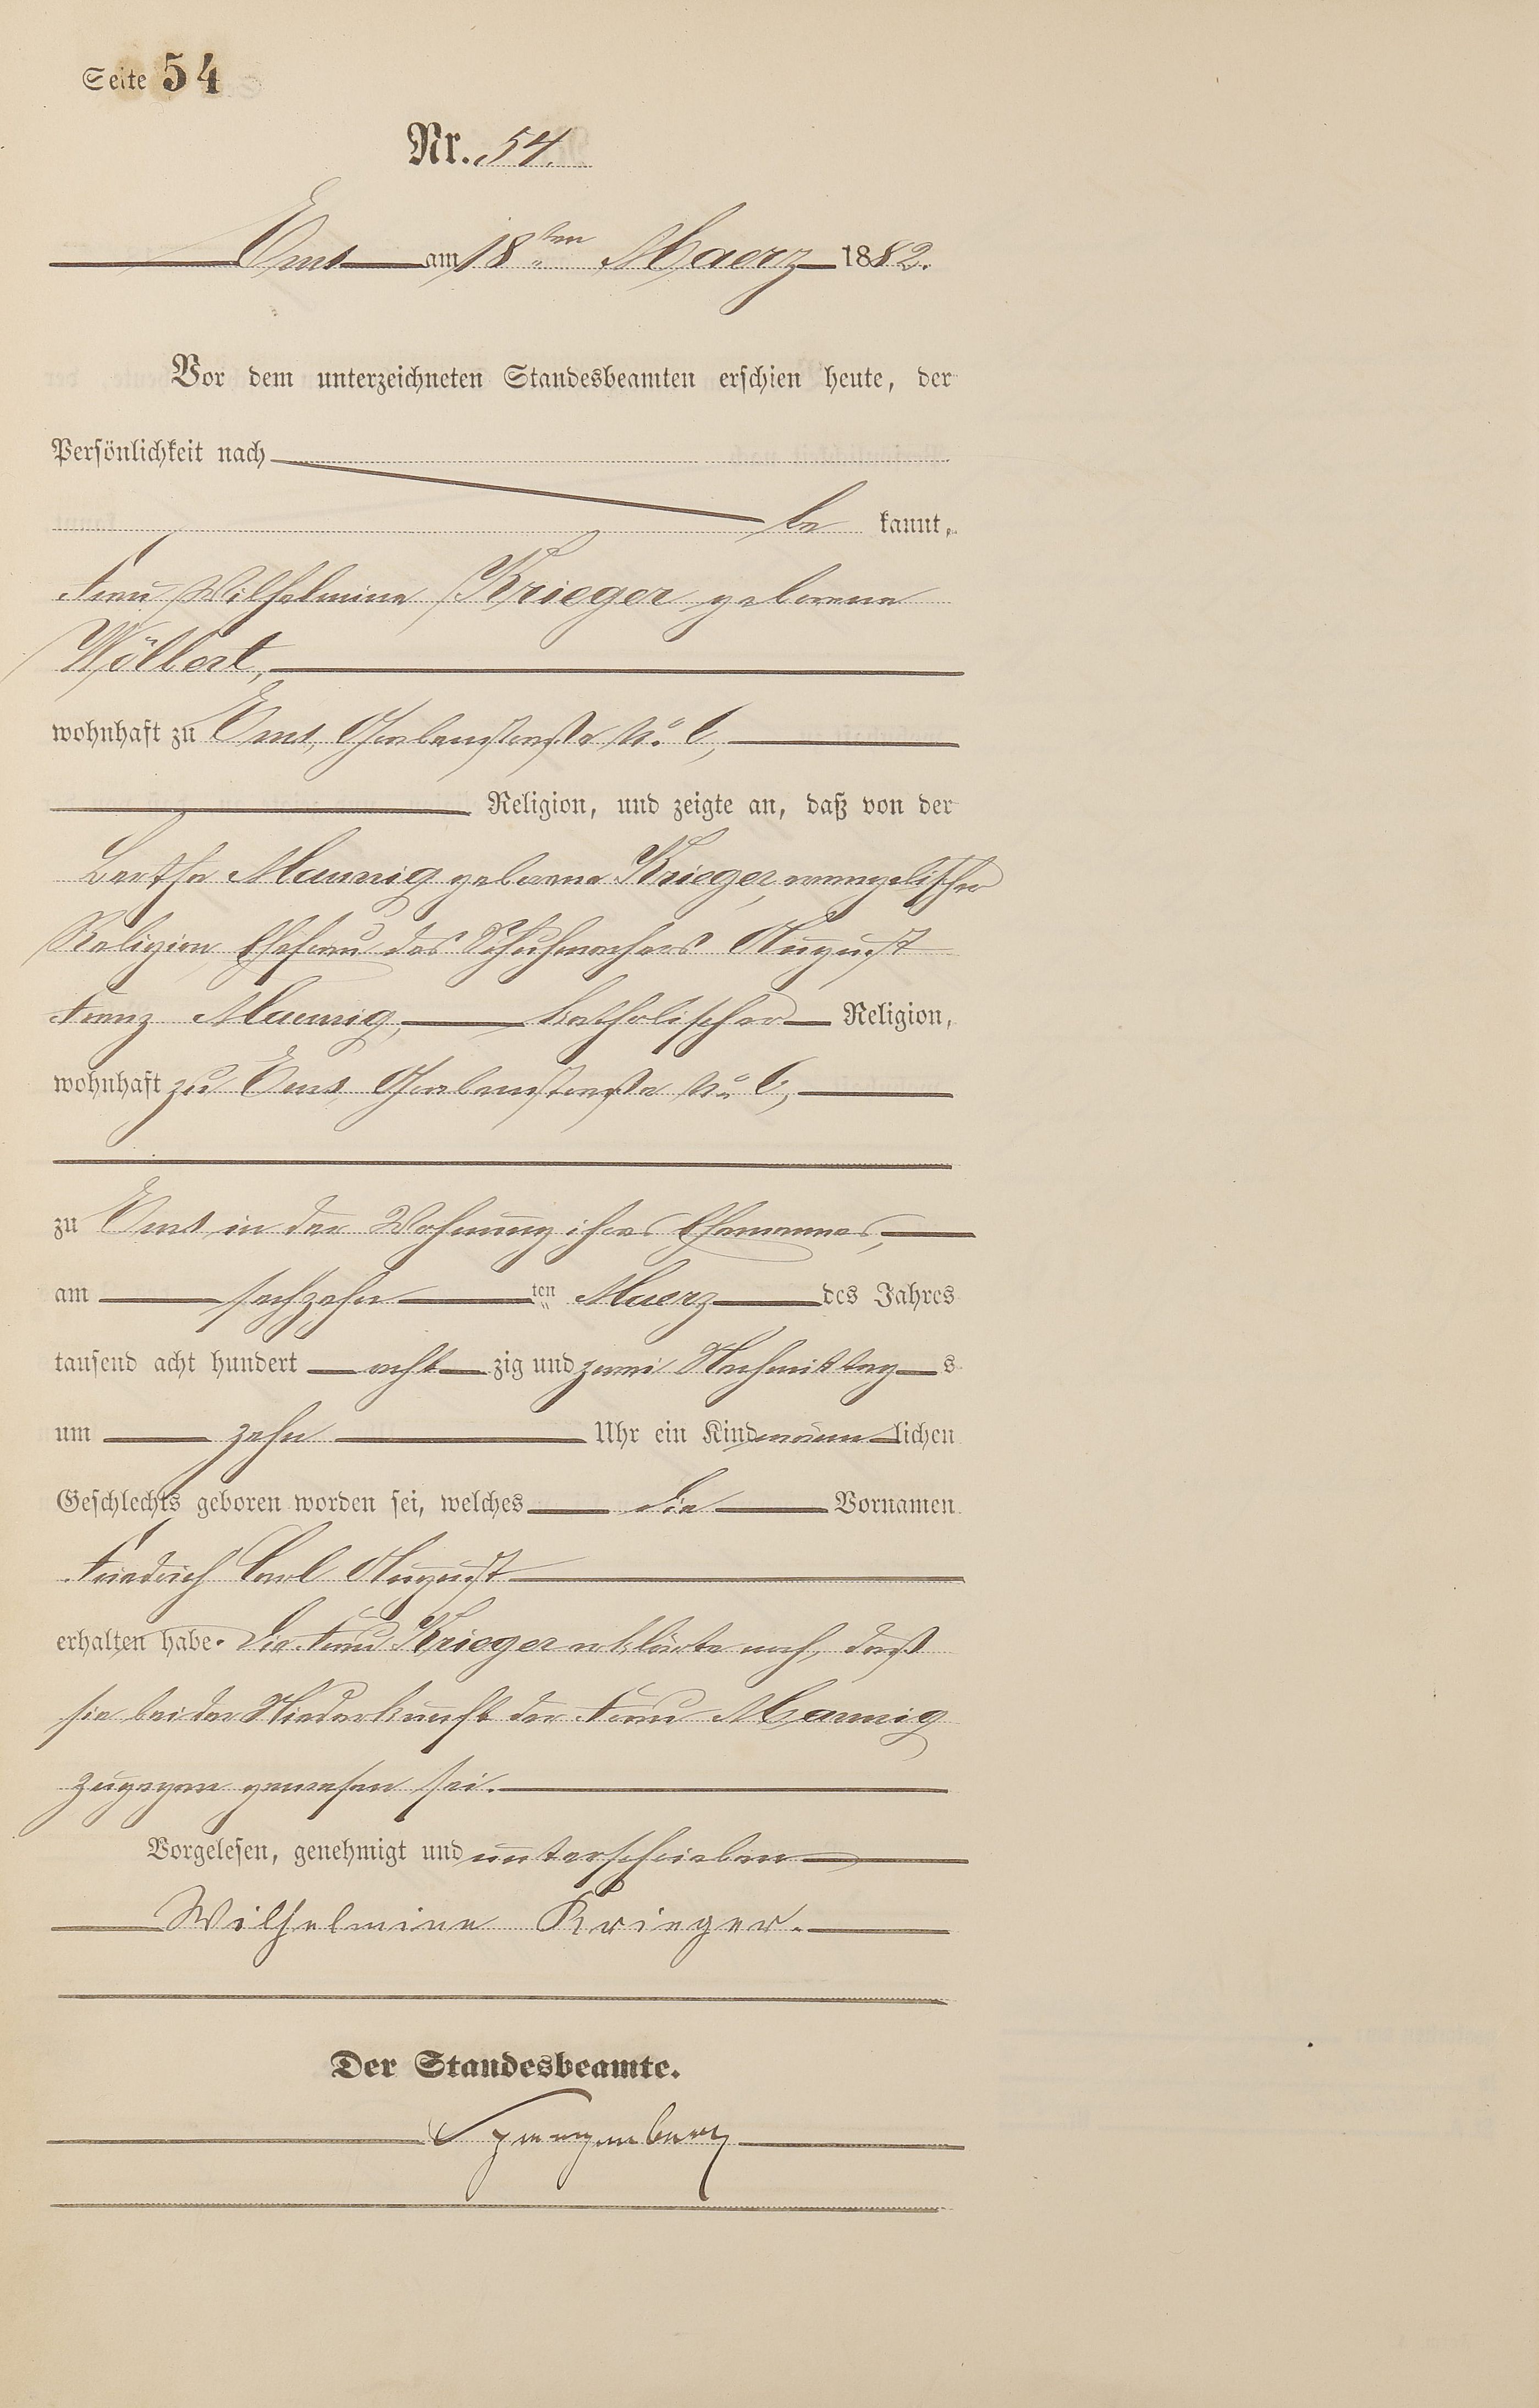 Seite 54
Nr. 54.
Ems am 18ten Maerz 1882.
Vor dem unterzeichneten Standesbeamten erschien heute, der
Persönlichkeit nach
be kannt,
Frau Wilhelmine Krieger geborene
Wölbert,
wohnhaft zu Ems, Grabenstraße No. 6,
Religion, und zeigte an, daß von der
Bertha Maunig geborene Krieger, evangelischer
Religion, Ehefrau des Schuhmachers August
Franz Maunig, katholischer Religion,
wohnhaft zu Ems, Grabenstraße No. 6,
zu Ems in der Wohnung ihres Ehemannes,
am sechzehn ten Maerz des Jahres
tausend acht hundert acht zig und zwei Nachmittag s
um zehn Uhr ein Kind männ lichen
Geschlechts geboren worden sei, welches die Vornamen
Friedrich Carl August
erhalten habe. Die Frau Krieger erklärte noch, daß
sie bei der Niederkunft der Frau Maunig
zugegen gewesen sei.
Vorgelesen, genehmigt und unterschrieben
Wilhelmine Krieger.
Der Standesbeamte.
Spangenberg